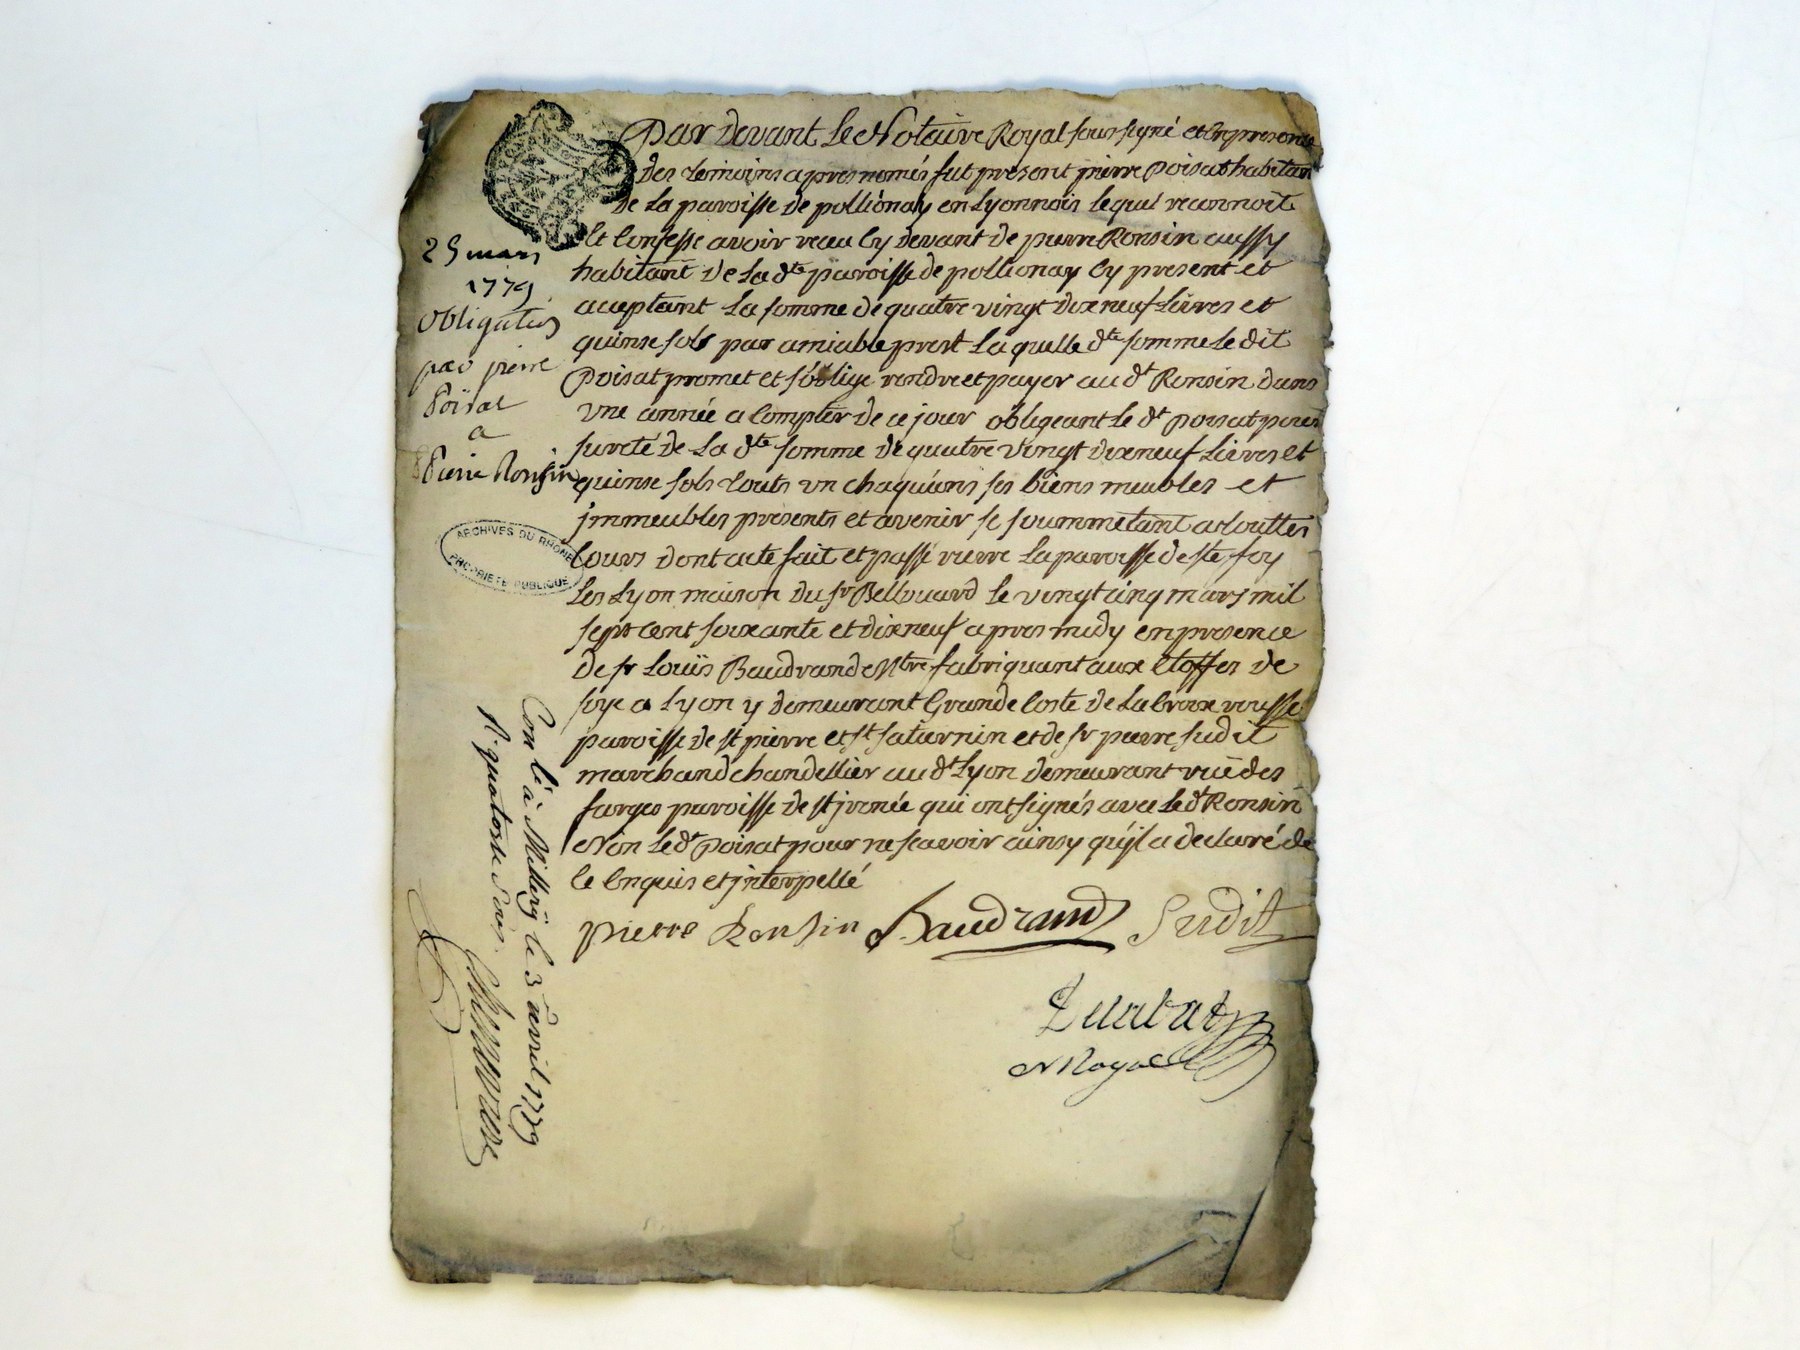 Par devant Le Notaire Royal soussigné et en presence
des temoins apres només fut present pierre Poisat habitant
de La paroisse de pollionay en Lyonnois lequel reconnoit
et Confesse avoir receu Cy devant de pierre Ronsin aussy
habitant de La dte paroisse de pollionay Cy present et
aceptant La somme de quatre vingt dixneuf Livres et
quinse sols par amiable prest La quelle dte somme Le dit
Poisat promet et s'oblige rendre et payer au dt Ronsin dans
une année a Compter de ce jour obligeant Le dt poisat pour
sureté de La dte somme de quatre vingt dixneuf Livres et
quinse sols touts un chaq'uns ses biens meubles et
jmmeubles presents et avenir se soummetant a touttes
Cours dont acte fait et passé riere La paroisse de ste foy
Les Lyon maison du sr Bellouard le vingt cinq mars mil
sept cent soixante et dixneuf apres midy en presence
de sr Louïs Baudrand Mtre fabriquant aux Etoffes de
soye a Lyon y demeurant Grande Coste de La Croix rousse
paroisse de st pierre et st saturnin et de sr pierre sudit
marchand chandellier au dt Lyon demeurant rüe des
farges paroisse de st jrenée qui ont signés avec Le dt Ronsin
Non Le dt Poisat pour ne scavoir ainsy qu'jl a declaré de
Ce Enquis et jnterpellé
pierre Ronsin Baudrand Sudit
N Royal
25 mars
1779
Obligation
par pierre
Poïsat
a
Pierre Ronsin
ARCHIVES DU RHONE
PROPRIETE PUBLIQUE
Con lé à Millery le 3 avril 1779
R. quatorse sols